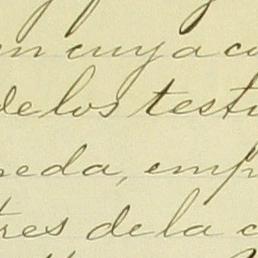 en cuya co
de los testi
eda, emp
tres de la c